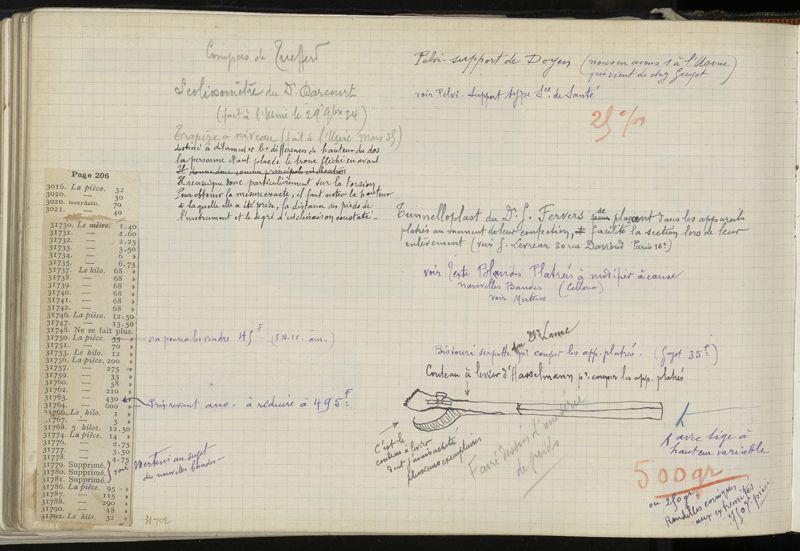 Page 206
3016. La pièce. 32
3020. — 30
3020. inoxydable. 70
3021. — 40
31730. Le mètre. 1.40
31731. — 1.60
31732. — 2.25
31733. — 3.50
31734. — 6 »
31735. — 6.75
31737. Le kilo. 68 »
31738. — 68 »
31739. — 68 »
31740. — 68 »
31741. — 68 »
31742. — 68 »
31746. La pièce. 12.50
31747. — 13.50
31748. Ne se fait plus.
31750. La pièce. 55
31751. — 70 »
31753. Le kilo. 12 »
31756. La pièce. 200 »
31757. — 275 »
31759. — 33 »
31760. — 58 »
31762. — 210 »
31763. — 430
31764. — 600
31766. Le kilo. 1 »
31767. — 3 »
31768. 5 kilos. 12.50
31774. La pièce. 14 »
31776. — 2.75
31777. — 3.50
31778. — 4.75
31779. Supprimé.
31780. Supprimé.
31781. Supprimé.
31786. La pièce. 95 »
31787. — 115 »
31788. — 290 »
31790. — 18 »
31792. Le kilo. 32 »
31702
Compas de
Scoliosomètre du Dr Darcourt
(fait à l'Usine le 29 9bre 34)
Trapèze à niveau (fait à l'Usine Mars 35)
destiné à déterminer les différences de hauteur du dos
la personne étant placée le tronc fléchi en avant
Il donne donc comme principale indication
Il renseigne donc particulièrement sur la torsion.
Pour obtenir la mesure exacte, il faut noter la hauteur
à laquelle elle a été prise, la distance des pieds de
l'instrument et le degré d'inclinaison constaté -
on pourra les vendre 45 F (S.N.I.C. ans.)
Prix revient ans - à réduire à 495 F
voir Mertens au sujet
des nouvelles bandes
Pelvi-support de Doyen (nous en avons 1 à l'Usine
qui vient de chez Guyot)
voir Pelvi-Support type Sce de Santé
Tunnelloplast du Dr J. Fervers se plaçant dans les appareils
plâtrés au moment de leur confection, facilite la section lors de leur
enlèvement (voir J. Levreau 30 rue Paris 16e)
voir Texte Blandes Platrées à modifier à cause
nouvelles Bandes (Cellona)
voir Mertens
du Dr Lance
Bistouri serpette pr couper les app. platrés. (Guyot 35 F)
Couteau à levier d'Hasselmann pr couper les app. platrés
C'est le
couteau à levier
dont j'avais acheté
plusieurs exemplaires
Faire dessin d'ensemble
de poids
avec tige à
hauteur variable
500 gr
ou 250 gr
Rondelles
aux extrémités